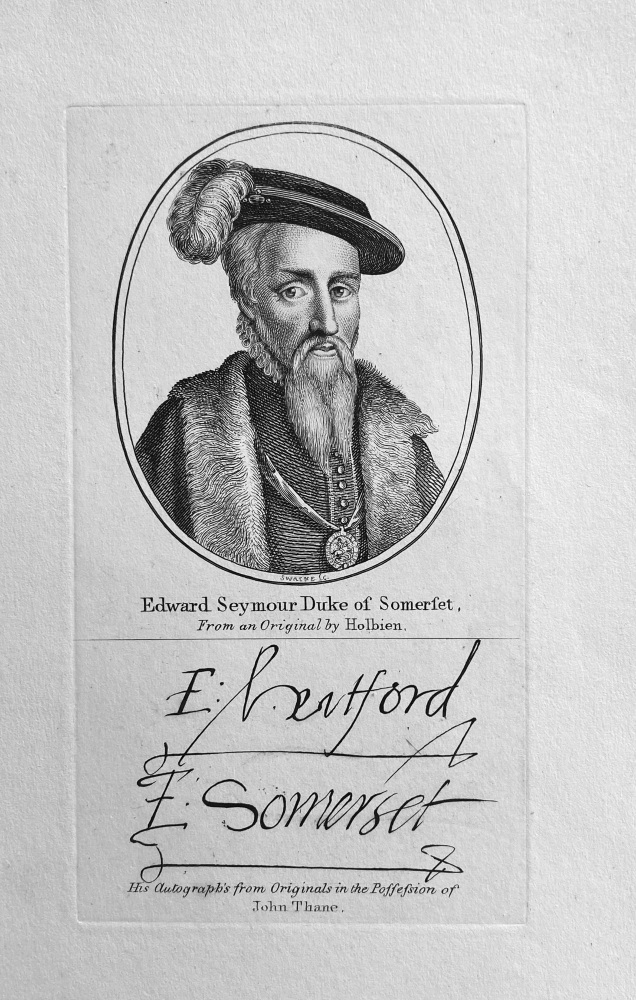 Swaine Sc.
Edward Seymour Duke of Somerſet,
From an Original by Holbien.
E: hertford
E: Somerset
His Autograph's from Originals in the Poſſeſsion of
John Thane.